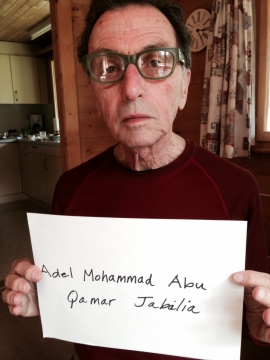 Adel Mohammad Abu
Qamar Jabalia